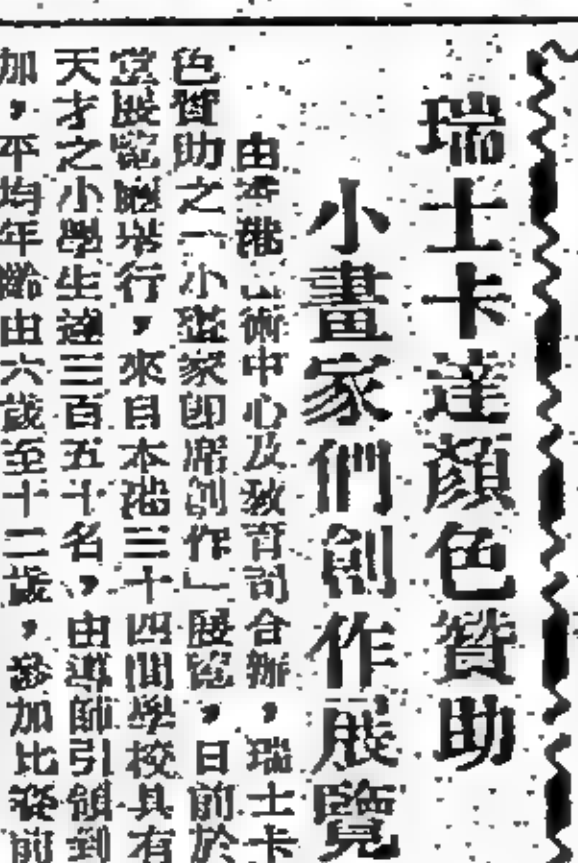 瑞士卡達顏色贊助
小畫家們創作展覽
由香港藝術中心及敎育司合辦，瑞士卡
色贊助之「小畫家即席創作」展覽，日前於
堂展覽廳舉行，來自本港三十四間學校具有
天才之小學生達三百五十名，由導師引領到
加，平均年齡由六歲至十二歲，參加比賽前